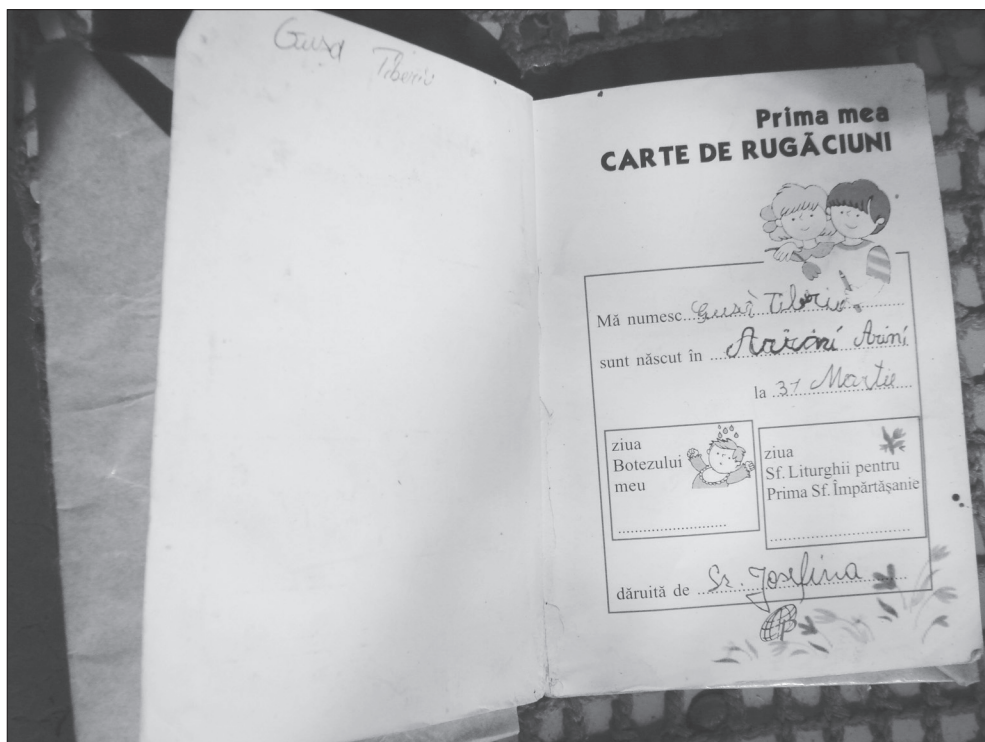 Gușă Tiberiu
Prima mea
CARTE DE RUGĂCIUNI
Mă numesc Gușă Tiberiu
sunt născut în Arini Arini
la 31 Martie
ziua
Botezului
meu
ziua
Sf. Liturghii pentru
Prima Sf. Împărtășanie
dăruită de Sr. Josefina